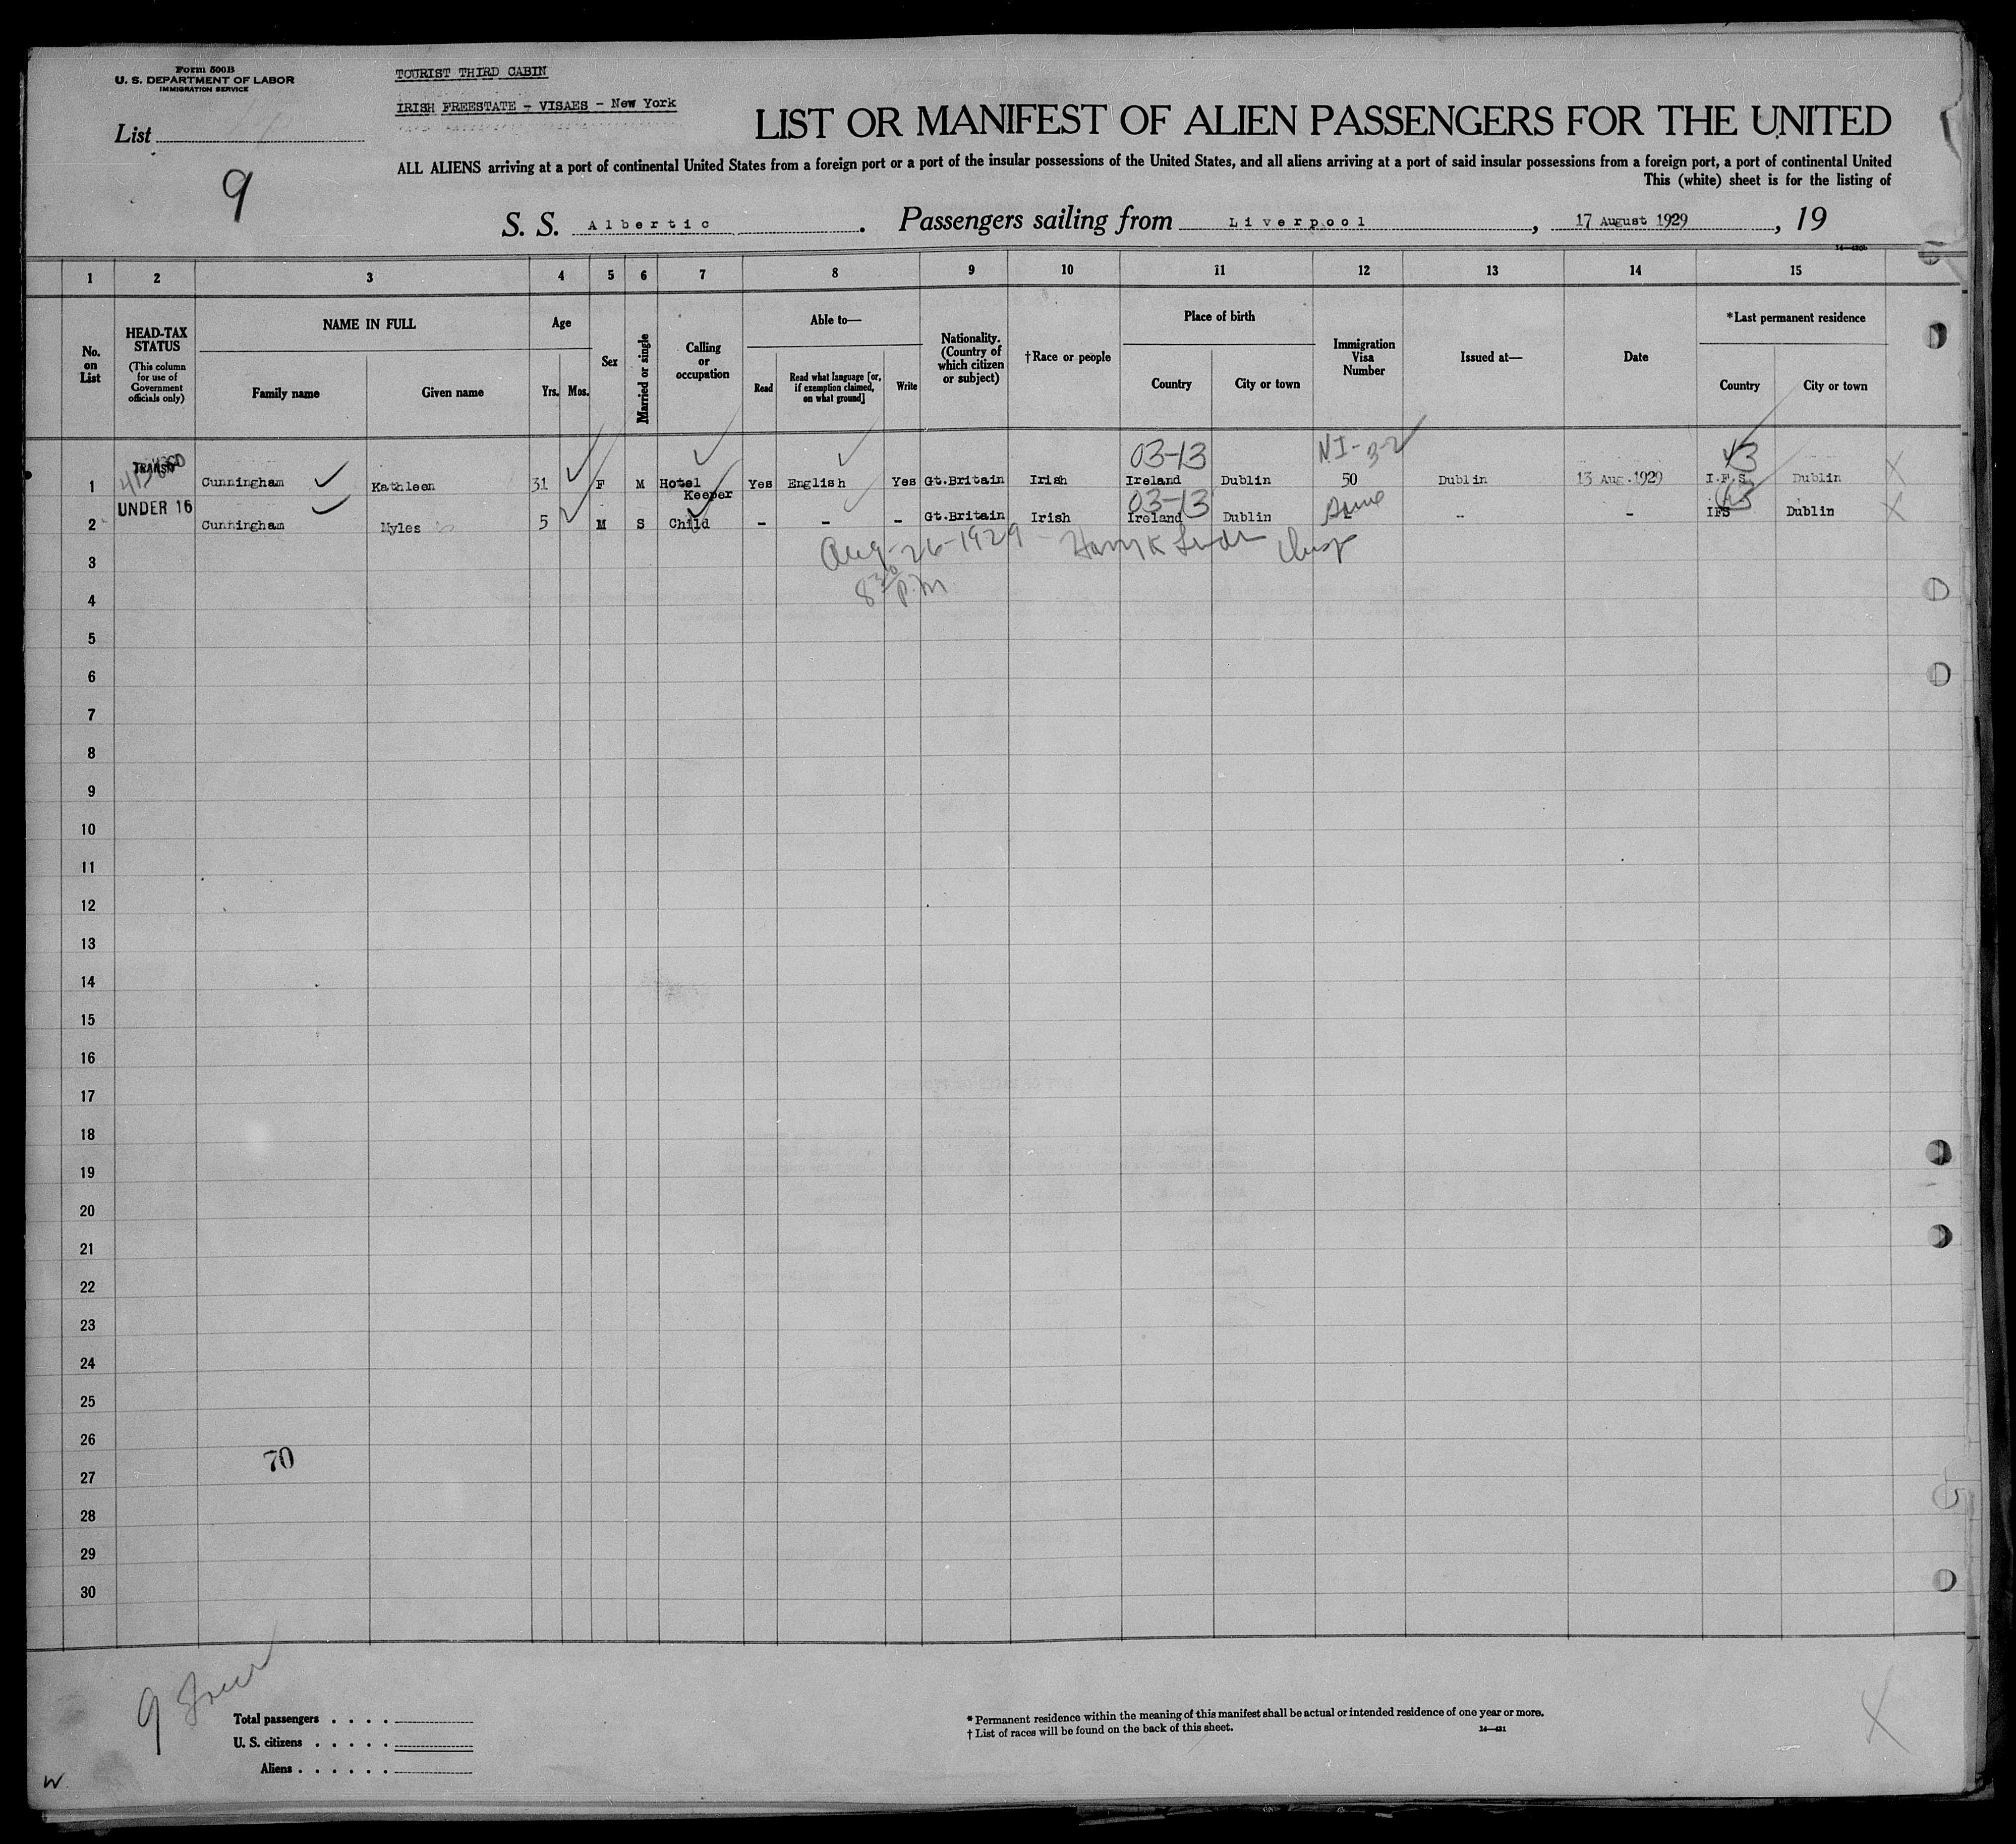 Form 500B
U. S. DEPARTMENT OF LABOR
IMMIGRATION SERVICE
TOURIST THIRD CABIN
IRISH FREESTATE - VISAES - New York
List
9
LIST OR MANIFEST OF ALIEN PASSENGERS FOR THE UNITED
ALL ALIENS arriving at a port of continental United States from a foreign port or a port of the insular possessions of the United States, and all aliens arriving at a port of said insular possessions from a foreign port, a port of continental United
This (white) sheet is for the listing of
S. S. Albertic. Passengers sailing from Liverpool, 17 August 1929, 19
1 2 3 4 5 6 7 8 9 10 11 12 13 14 15
No. on List
HEAD-TAX STATUS
(This column for use of Government officials only)
NAME IN FULL
Family name Given name
Age
Yrs. Mos.
Sex
Married or single
Calling or occupation
Able to—
Read
Read what language [or, if exemption claimed, on what ground]
Write
Nationality. (Country of which citizen or subject)
†Race or people
Place of birth
Country City or town
Immigration Visa Number
Issued at—
Date
*Last permanent residence
Country City or town
03-13 NI-3-2
TRANSIT
1 Cunningham Kathleen 31 F M Hotel Keeper Yes English Yes Gt.Britain Irish Ireland Dublin 50 Dublin 13 Aug.1929 I.F.S. Dublin
UNDER 16 03-13
2 Cunningham Myles 5 M S Child - - - Gt.Britain Irish Ireland Dublin - - - IFS Dublin
Aug-26-1929
8 30 P.M
3
4
5
6
7
8
9
10
11
12
13
14
15
16
17
18
19
20
21
22
23
24
25
26
70
27
28
29
30
9
Total passengers . . . .
U. S. citizens . . . . .
Aliens . . . . . .
* Permanent residence within the meaning of this manifest shall be actual or intended residence of one year or more.
† List of races will be found on the back of this sheet.
14—431
W